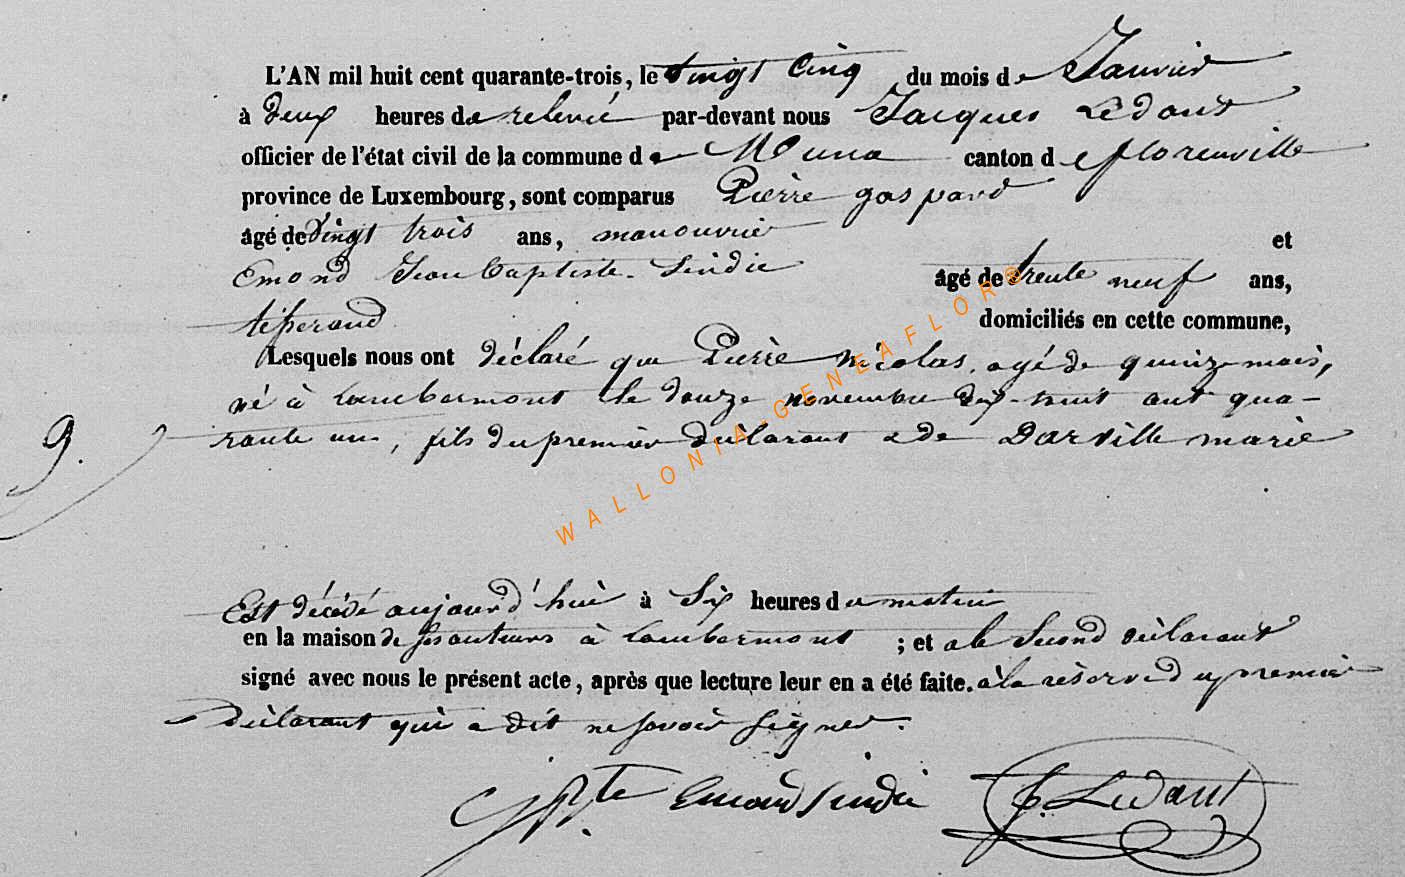 L'AN mil huit cent quarante-trois, le vingt cinq du mois de Janvier
à deux heures de relevée par-devant nous Jacques Ledant
officier de l'état civil de la commune de Muno canton de florenville
province de Luxembourg, sont comparus Pierre gaspard
âgé de vingt trois ans, manouvrier et
Emond Jean baptiste Sindic âgé de trente neuf ans,
tisserand domiciliés en cette commune,
Lesquels nous ont déclaré que Pierre Nicolas, agé de quinze mois,
né à Lambermont le douze novembre dix-huit cent qua-
rante un, fils du premier déclarant & de Darville marie
9.
Est décédé aujourd'hui à Six heures du matin
en la maison de ses auteurs à Lambermont ; et a le Second déclarant
signé avec nous le présent acte, après que lecture leur en a été faite. à la réserve du premier
déclarant qui a dit ne savoir Signer.
Emond Sindic J. Ledant
WALLONIA-GENEAFLOR®